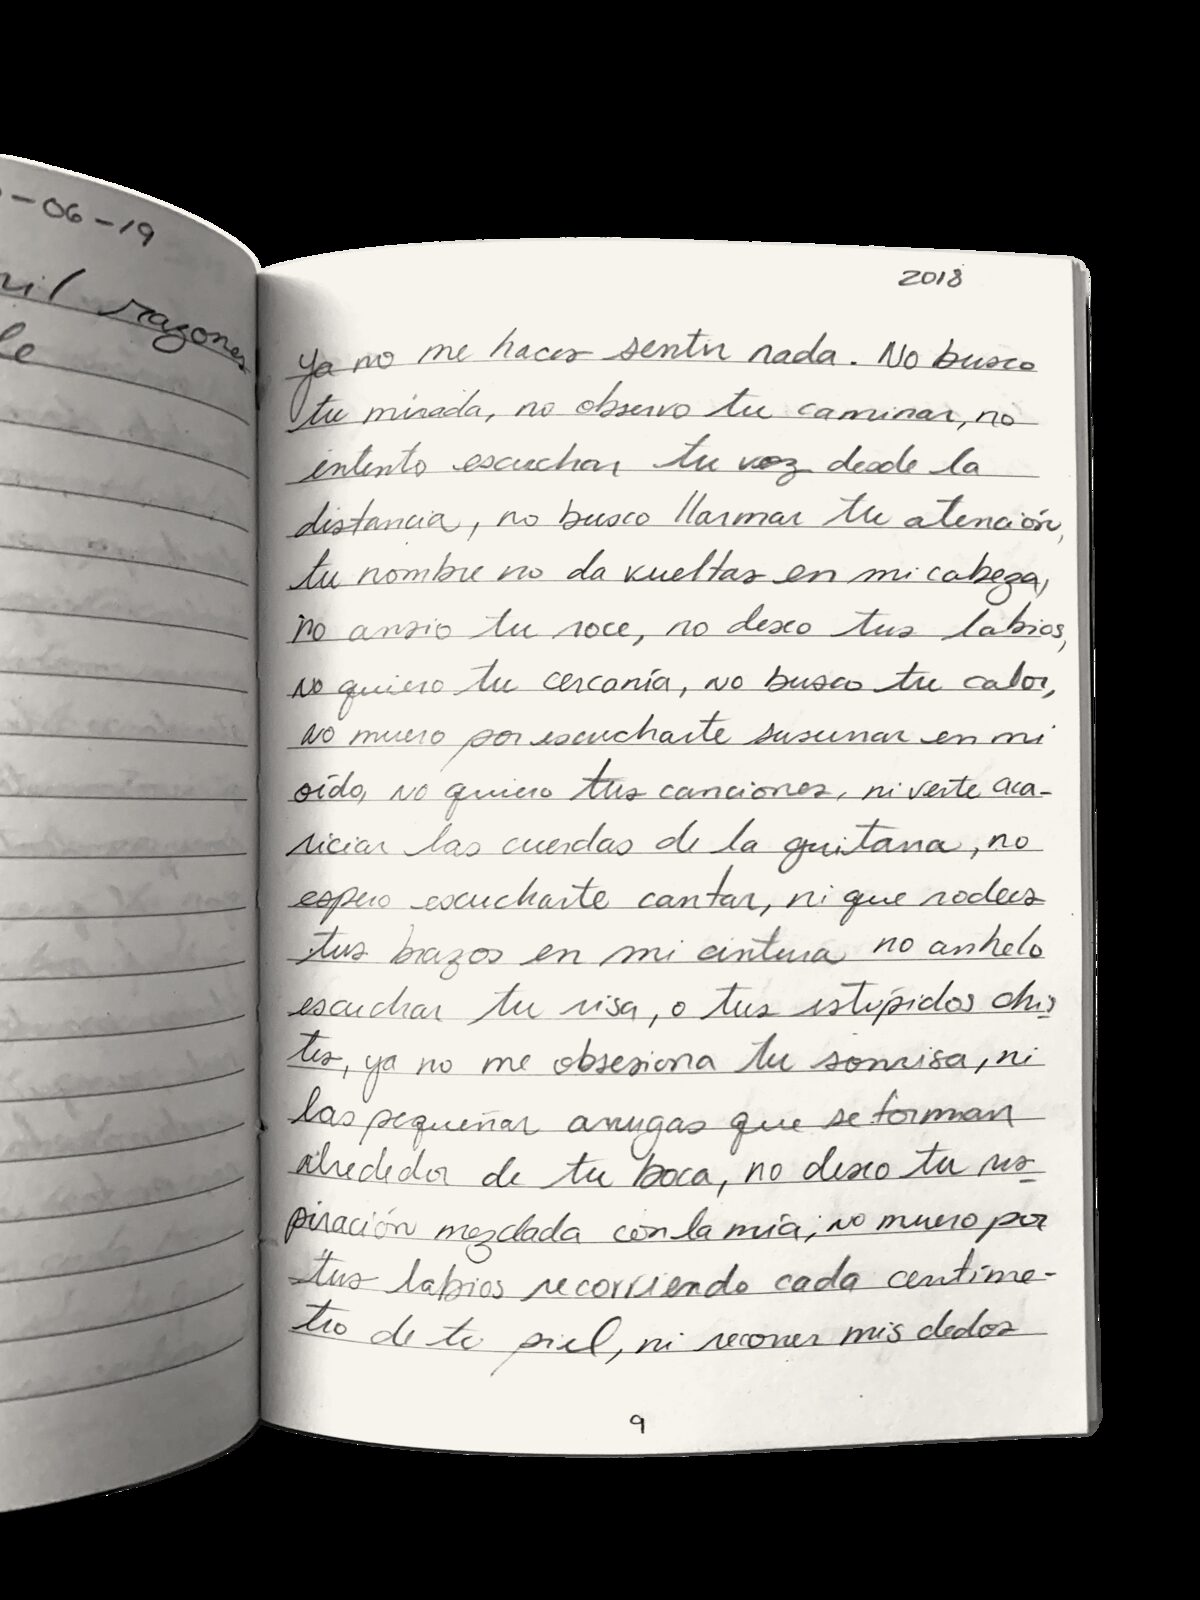 -06-19
mil razones
le
2018
Ya no me haces sentir nada. No busco
tu mirada, no observo tu caminar, no
intento escuchar tu voz desde la
distancia, no busco llarmar tu atención,
tu nombre no da vueltas en mi cabeza,
no ansio tu roce, no deseo tus labios,
No quiero tu cercanía, no busco tu calor,
no muero por escucharte susurrar en mi
oído, no quiero tus canciones, ni verte aca-
riciar las cuerdas de la guitarra, no
espero escucharte cantar, ni que rodees
tus brazos en mi cintura no anhelo
escuchar tu risa, o tus estúpidos chis
tes, ya no me obsesiona tu sonrisa, ni
las pequeñas arrugas que se forman
alrededor de tu boca, no deseo tu res
piración mezclada con la mía, no muero por
tus labios recorriendo cada centíme-
tro de tu piel, ni recorrer mis dedos
9